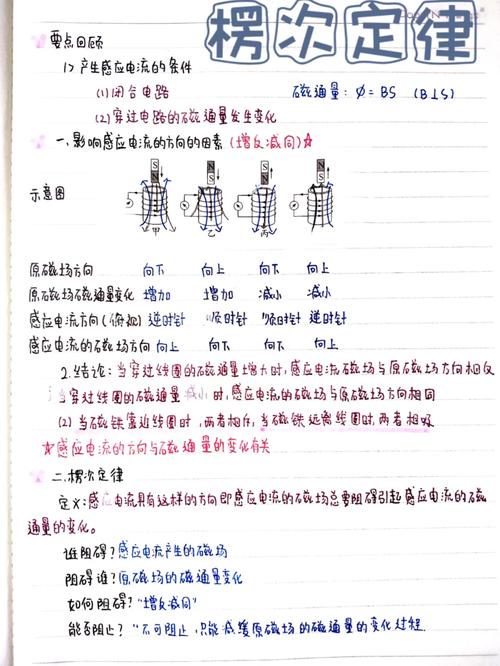 楞次定律
要点回顾
1> 产生感应电流的条件
(1) 闭合电路 磁通量: Φ = BS (B⊥S)
(2) 穿过电路的磁通量发生变化
一、影响感应电流的方向的因素 (增反减同) ☆
S S N
N N S S
示意图
甲 乙 丙
原磁场方向 向下 向上 向下 向上
原磁场磁通量变化 增加 增加 减小 减小
感应电流方向(俯视) 逆时针 顺时针 顺时针 逆时针
感应电流的磁场方向 向上 向下 向下 向上
2.结论: 当穿过线圈的磁通量增大时,感应电流磁场与原磁场方向相反
当穿过线圈的磁通量减小时,感应电流的磁场与原磁场方向相同
(2) 当磁铁靠近线圈时,两者相斥,当磁铁远离线圈时,两者相吸
☆感应电流的方向与磁通量的变化有关
二.楞次定律
定义:感应电流具有这样的方向即感应电流的磁场总要阻碍引起感应电流的磁
通量的变化。
谁阻碍?感应电流产生的磁场
阻碍谁?原磁场的磁通量变化
如何阻碍?"增反减同"
能否阻止?"不可阻止,只能减缓原磁场的磁通量的变化过程.